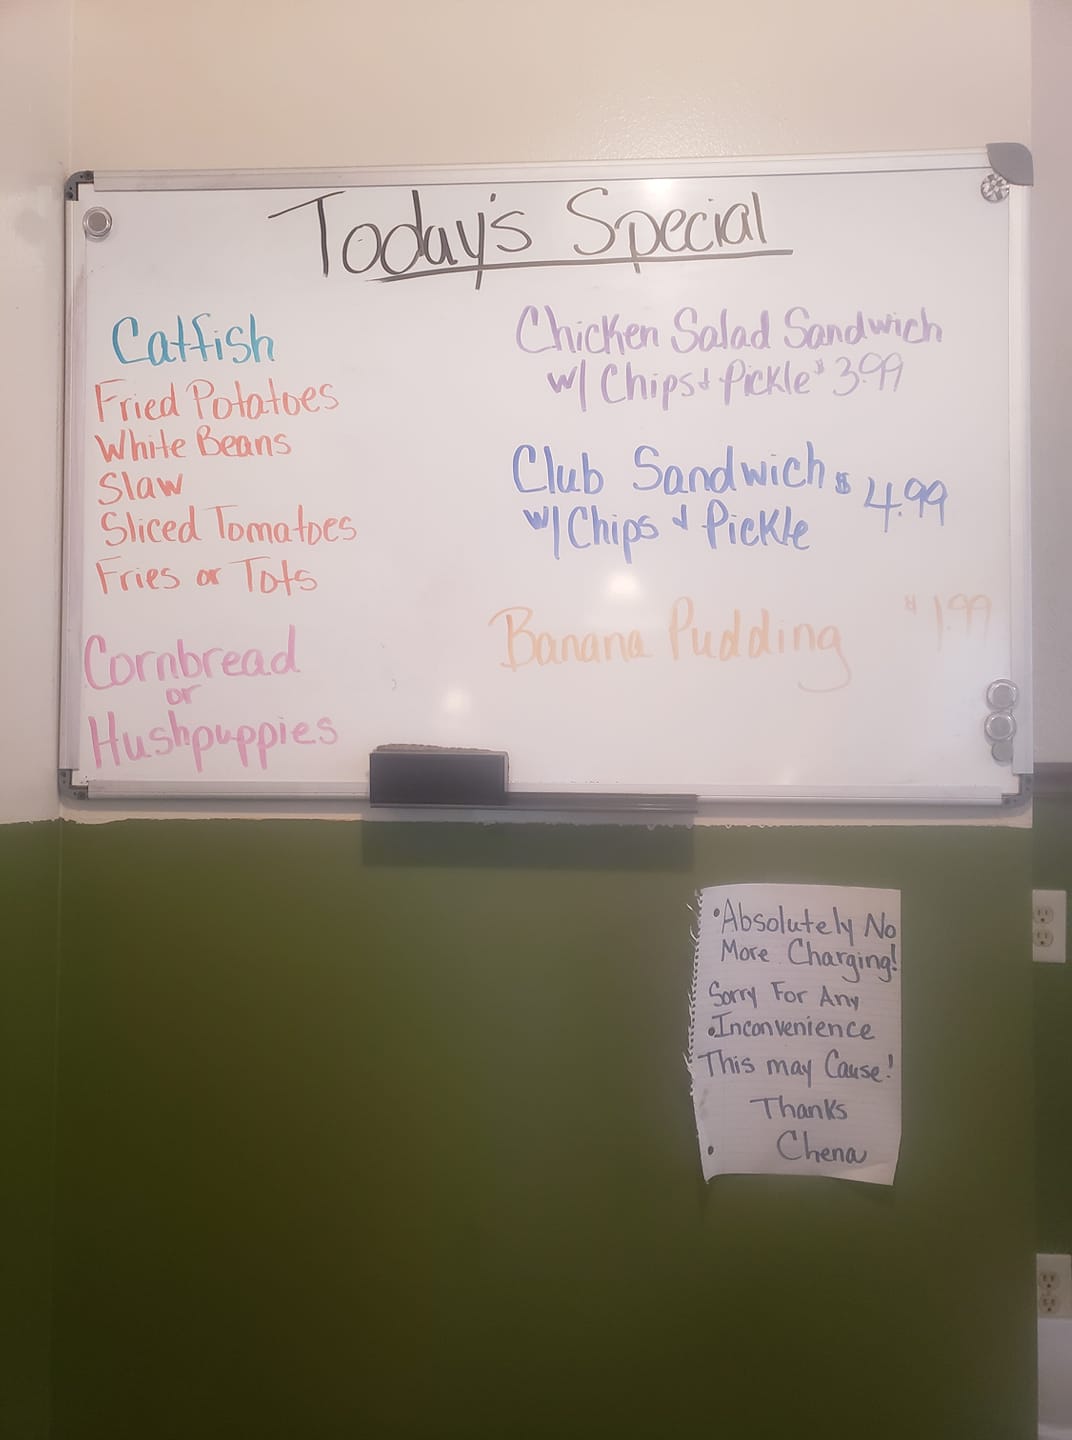 Today's Special
Catfish
Fried Potatoes
White Beans
Slaw
Sliced Tomatoes
Fries or Tots
Cornbread
or
Hushpuppies
Chicken Salad Sandwich
w/ Chips & Pickle $3.99
Club Sandwich $4.99
w/ Chips & Pickle
Banana Pudding $1.99
Absolutely No
More Charging!
Sorry For Any
Inconvenience
This may Cause!
Thanks
Chena